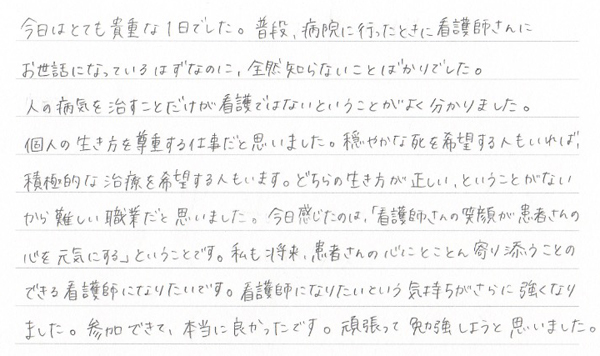 今日はとても貴重な1日でした。普段、病院に行ったときに看護師さんに
お世話になっているはずなのに、全然知らないことばかりでした。
人の病気を治すことだけが看護ではないということがよく分かりました。
個人の生き方を尊重する仕事だと思いました。穏やかな死を希望する人もいれば、
積極的な治療を希望する人もいます。どちらの生き方が正しい、ということがない
から難しい職業だと思いました。今日感じたのは、「看護師さんの笑顔が患者さんの
心を元気にする」ということです。私も将来、患者さんの心にとことん寄り添うことの
できる看護師になりたいです。看護師になりたいという気持ちがさらに強くなり
ました。参加できて、本当に良かったです。頑張って勉強しようと思いました。